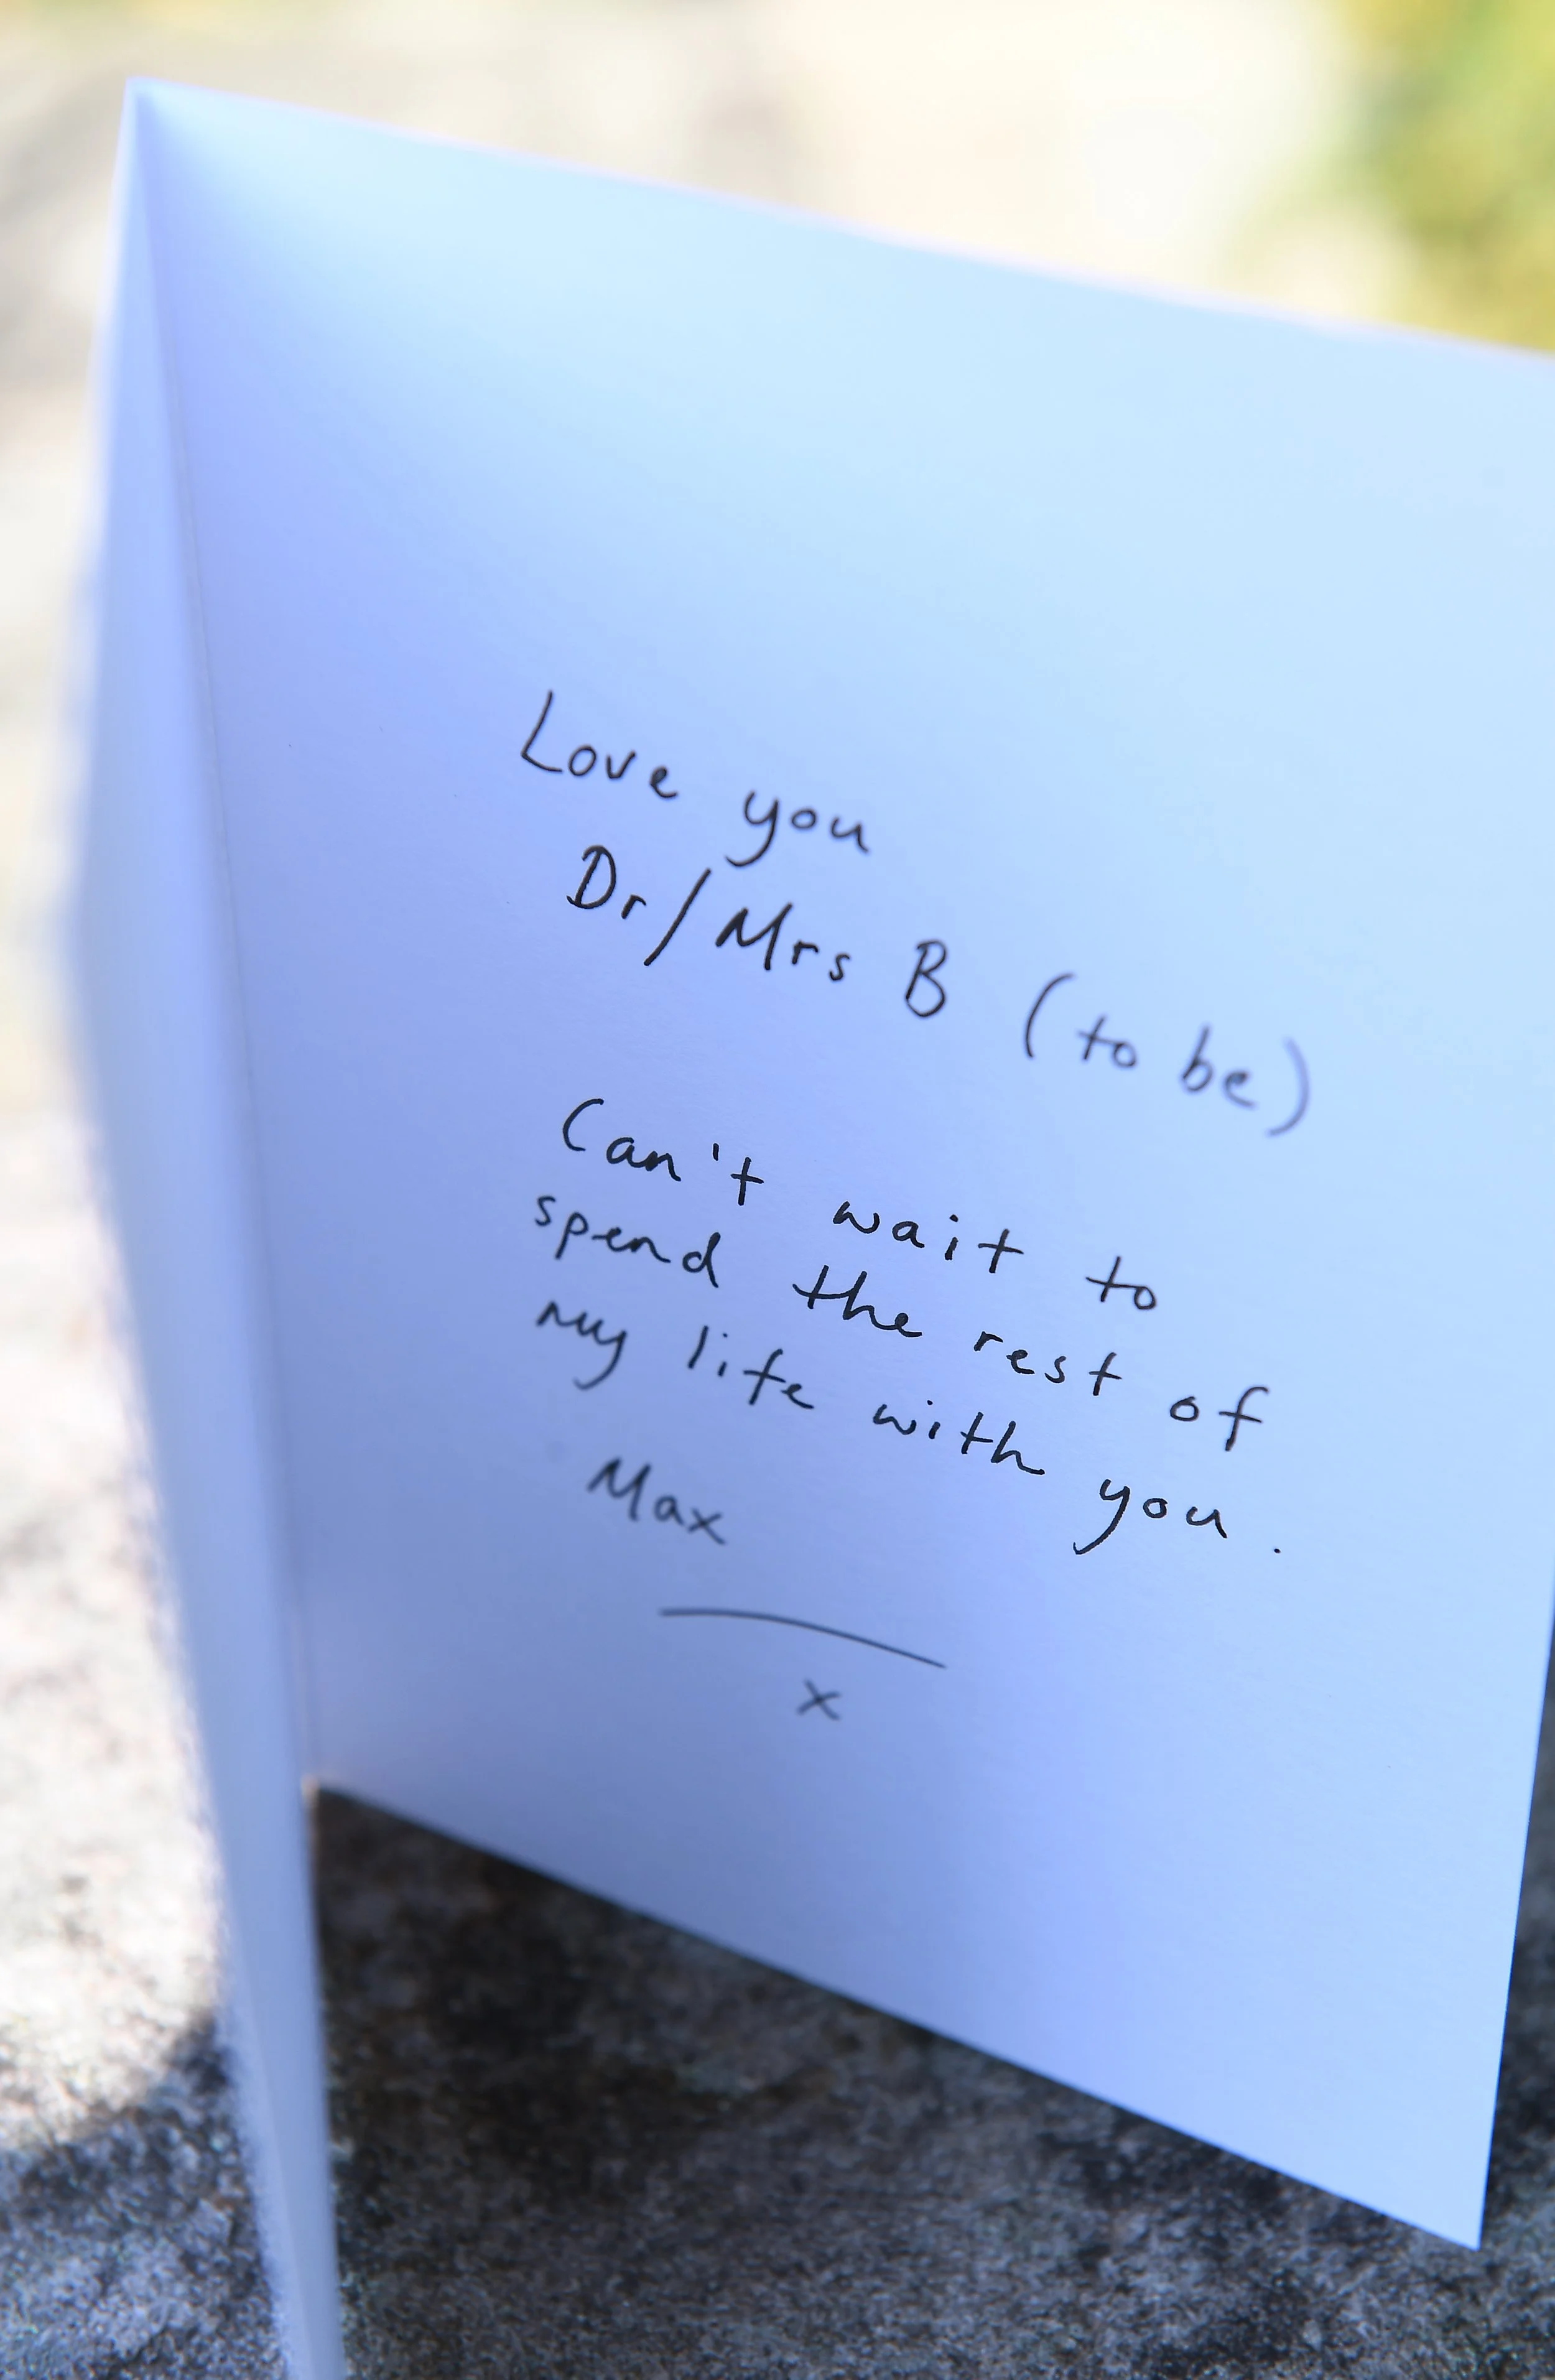 Love you
Dr/Mrs B (to be)
Can't wait to
spend the rest of
my life with you.
Max
x